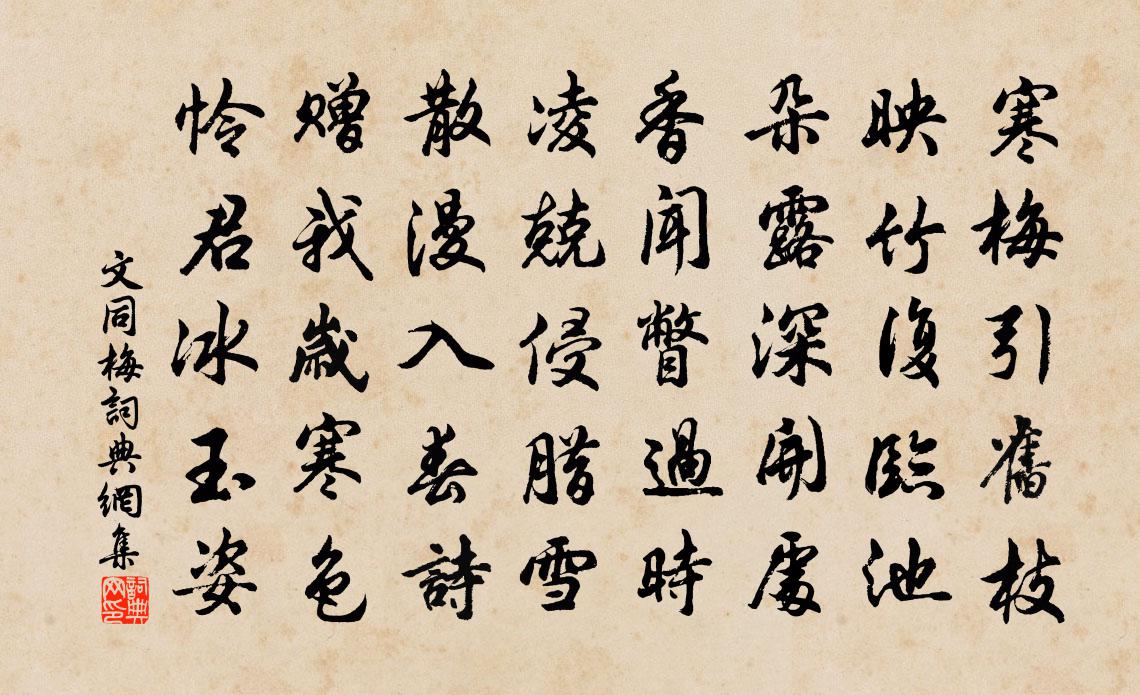 寒梅引舊枝
映竹復臨池
朵露深開處
香聞瞥過時
凌兢侵腊雪
散漫入春詩
赠我歲寒色
怜君冰玉姿
文同梅詞典網集
詞典網印